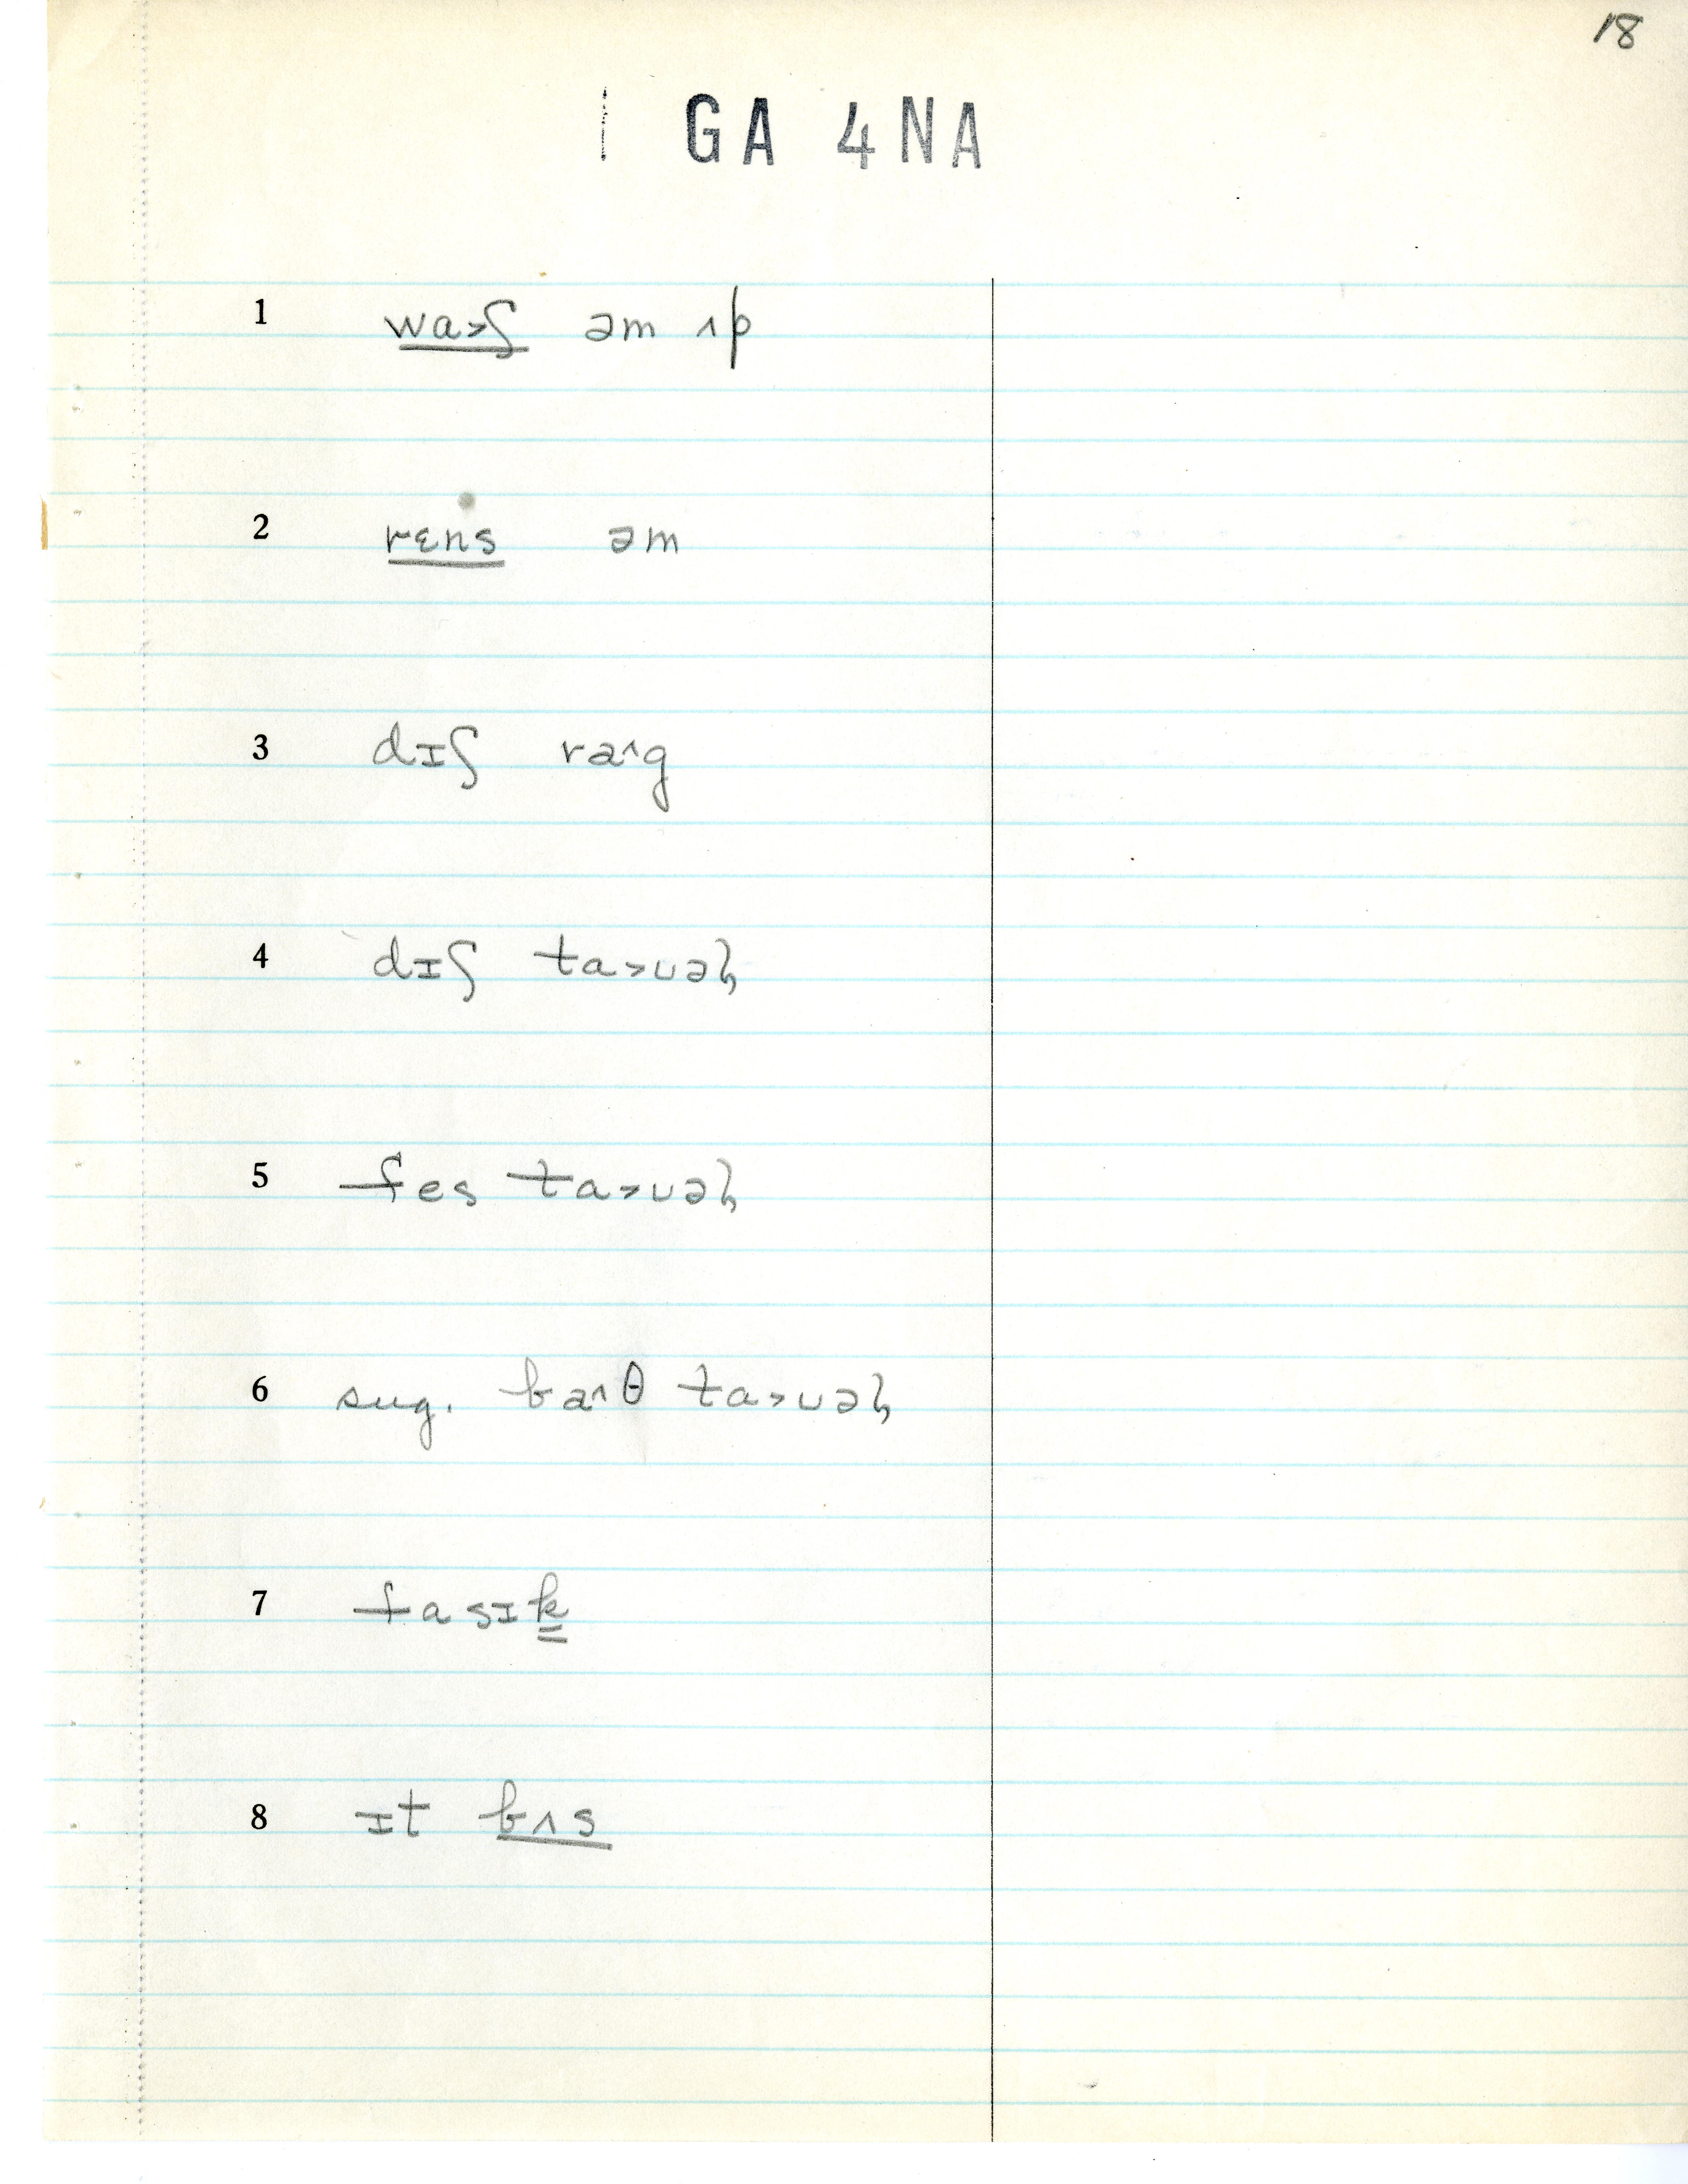 18
GA 4NA
1 wa˃ʃ əm ʌp
2 rɛns əm
3 dɪʃ raˑ^g
4 dɪʃ ta˃ʊəl
5 fes ta˃ʊəl
6 sug. ba^θ ta˃ʊəl
7 fasɪk
8 ɪt bʌs